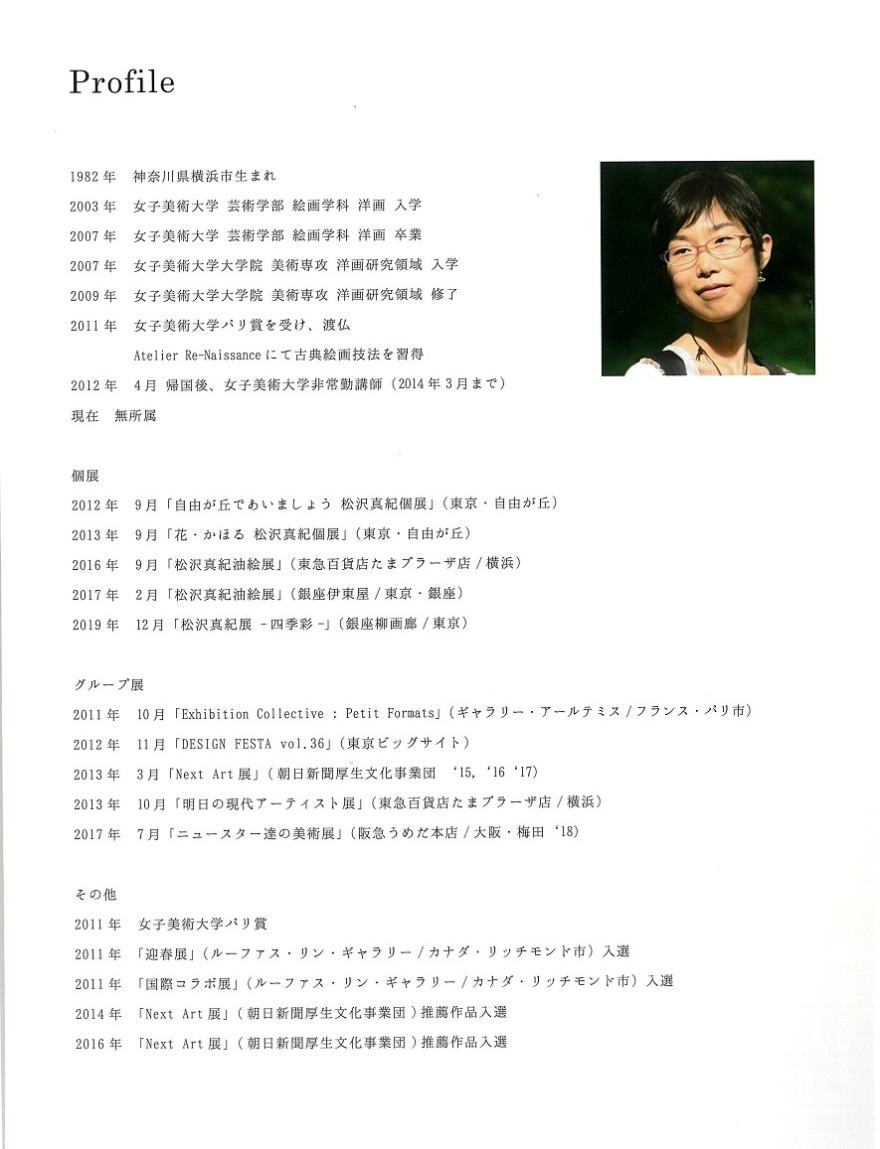 Profile
1982年 神奈川県横浜市生まれ
2003年 女子美術大学 芸術学部 絵画学科 洋画 入学
2007年 女子美術大学 芸術学部 絵画学科 洋画 卒業
2007年 女子美術大学大学院 美術専攻 洋画研究領域 入学
2009年 女子美術大学大学院 美術専攻 洋画研究領域 修了
2011年 女子美術大学パリ賞を受け、渡仏
Atelier Re-Naissanceにて古典絵画技法を習得
2012年 4月 帰国後、女子美術大学非常勤講師（2014年3月まで）
現在 無所属
個展
2012年 9月「自由が丘であいましょう 松沢真紀個展」（東京・自由が丘）
2013年 9月「花・かほる 松沢真紀個展」（東京・自由が丘）
2016年 9月「松沢真紀油絵展」（東急百貨店たまプラーザ店/横浜）
2017年 2月「松沢真紀油絵展」（銀座伊東屋/東京・銀座）
2019年 12月「松沢真紀展 -四季彩-」（銀座柳画廊/東京）
グループ展
2011年 10月「Exhibition Collective : Petit Formats」（ギャラリー・アールテミス/フランス・パリ市）
2012年 11月「DESIGN FESTA vol.36」（東京ビッグサイト）
2013年 3月「Next Art展」（朝日新聞厚生文化事業団 ‘15, ‘16 ‘17）
2013年 10月「明日の現代アーティスト展」（東急百貨店たまプラーザ店/横浜）
2017年 7月「ニュースター達の美術展」（阪急うめだ本店/大阪・梅田 ‘18）
その他
2011年 女子美術大学パリ賞
2011年 「迎春展」（ルーファス・リン・ギャラリー/カナダ・リッチモンド市）入選
2011年 「国際コラボ展」（ルーファス・リン・ギャラリー/カナダ・リッチモンド市）入選
2014年 「Next Art展」（朝日新聞厚生文化事業団）推薦作品入選
2016年 「Next Art展」（朝日新聞厚生文化事業団）推薦作品入選